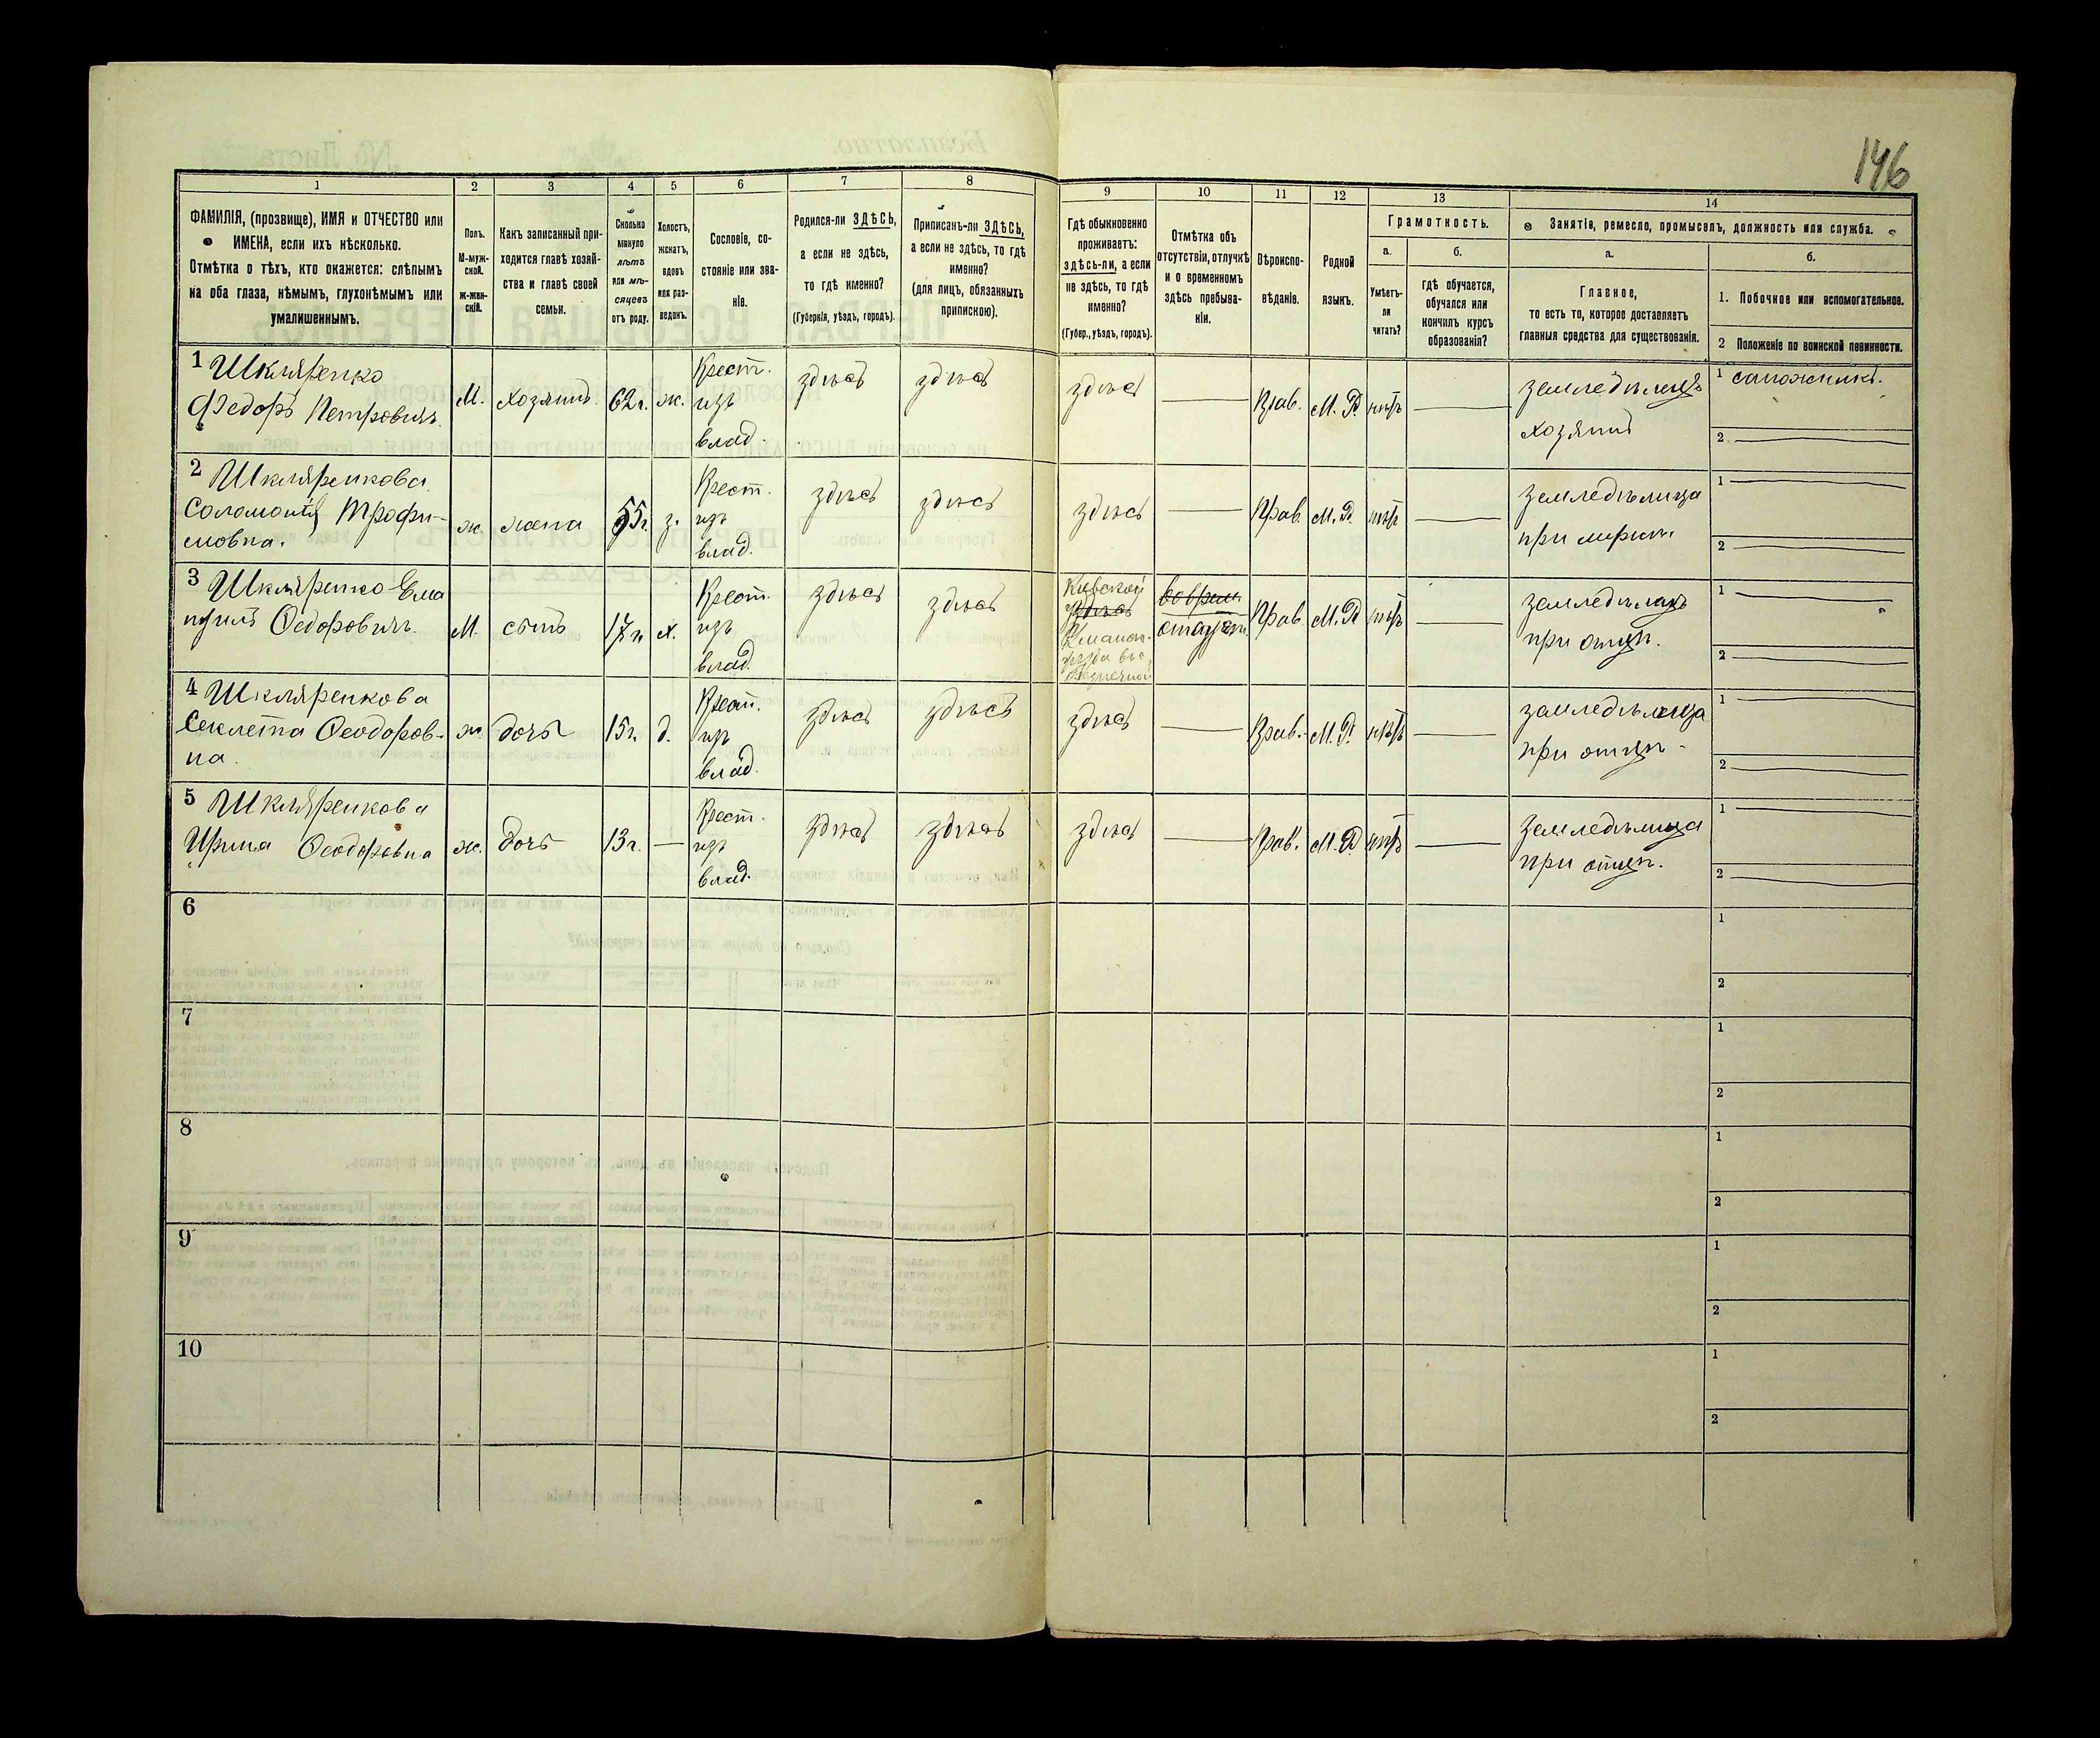 146
1
2
3
4
5
6
7
8
9
10
11
12
13
14
ФАМИЛІЯ, (прозвище), ИМЯ и ОТЧЕСТВО или
ИМЕНА, если ихъ нѣсколько.
Отмѣтка о тѣхъ, кто окажется: слѣпымъ
на оба глаза, нѣмымъ, глухонѣмымъ или
умалишеннымъ.
Полъ.
М-муж-
ской.
ж-жен-
скій.
Какъ записанный при-
ходится главѣ хозяй-
ства и главѣ своей
семьи.
Сколько
минуло
лѣтъ
или мѣ-
сяцевъ
отъ роду.
Холостъ,
женатъ,
вдовъ
или раз-
веденъ.
Сословіе, со-
стояніе или зва-
ніе.
Родился-ли ЗДѢСЬ,
а если не здѣсь,
то гдѣ именно?
(Губернія, уѣздъ, городъ).
Приписанъ-ли ЗДѢСЬ,
а если не здѣсь, то гдѣ
именно?
(для лицъ, обязанныхъ
припискою).
Гдѣ обыкновенно
проживаетъ:
здѣсь-ли, а если
не здѣсь, то гдѣ
именно?
(Губер., уѣздъ, городъ).
Отмѣтка объ
отсутствіи, отлучкѣ
и о временномъ
здѣсь пребыва-
ніи.
Вѣроиспо-
вѣданіе.
Родной
языкъ.
Грамотность.
а.
Умѣетъ-
ли
читать?
б.
гдѣ обучается,
обучался или
кончилъ курсъ
образованія?
Занятіе, ремесло, промыселъ, должность или служба.
а.
Главное,
то есть то, которое доставляетъ
главныя средства для существованія.
б.
1. Побочное или вспомогательное.
2 Положеніе по воинской повинности.
1 Шкляренко
Федоръ Петровичъ.
М.
Хозяинъ.
62 г.
ж.
Крест.
изъ
влад.
здѣсь
здѣсь
здѣсь
Прав.
М. Р.
нѣтъ
земледѣлецъ
хозяинъ
1 сапожникъ.
2
2 Шкляренкова
Соломонія Трофи-
мовна.
ж.
жена
55 г.
з.
Крест.
изъ
влад.
здѣсь
здѣсь
здѣсь
Прав.
М. Р.
нѣтъ
земледѣлица
при
1
2
3 Шкляренко
Федоровичъ.
М.
сынъ
17 л
х.
Крест.
изъ
влад.
здѣсь
здѣсь
Кіевской
здѣсь
Уманск.
уѣзда
Прав.
М. Р
нѣтъ
земледѣлецъ
при отцѣ.
1
2
4 Шкляренкова
Секлета Феодоров-
на.
ж.
дочь
15 г.
д.
Крест.
изъ
влад.
здѣсь
здѣсь
здѣсь
Прав.
М. Р.
нѣтъ
земледѣлица
при отцѣ
1
2
5 Шкляренкова
Ирина Феодоровна
ж.
дочь
13 г.
Крест.
изъ
влад.
здѣсь
здѣсь
здѣсь
Прав.
М. Р.
нѣтъ
земледѣлица
при отцѣ.
1
2
6
1
2
7
1
2
8
1
2
9
1
2
10
1
2